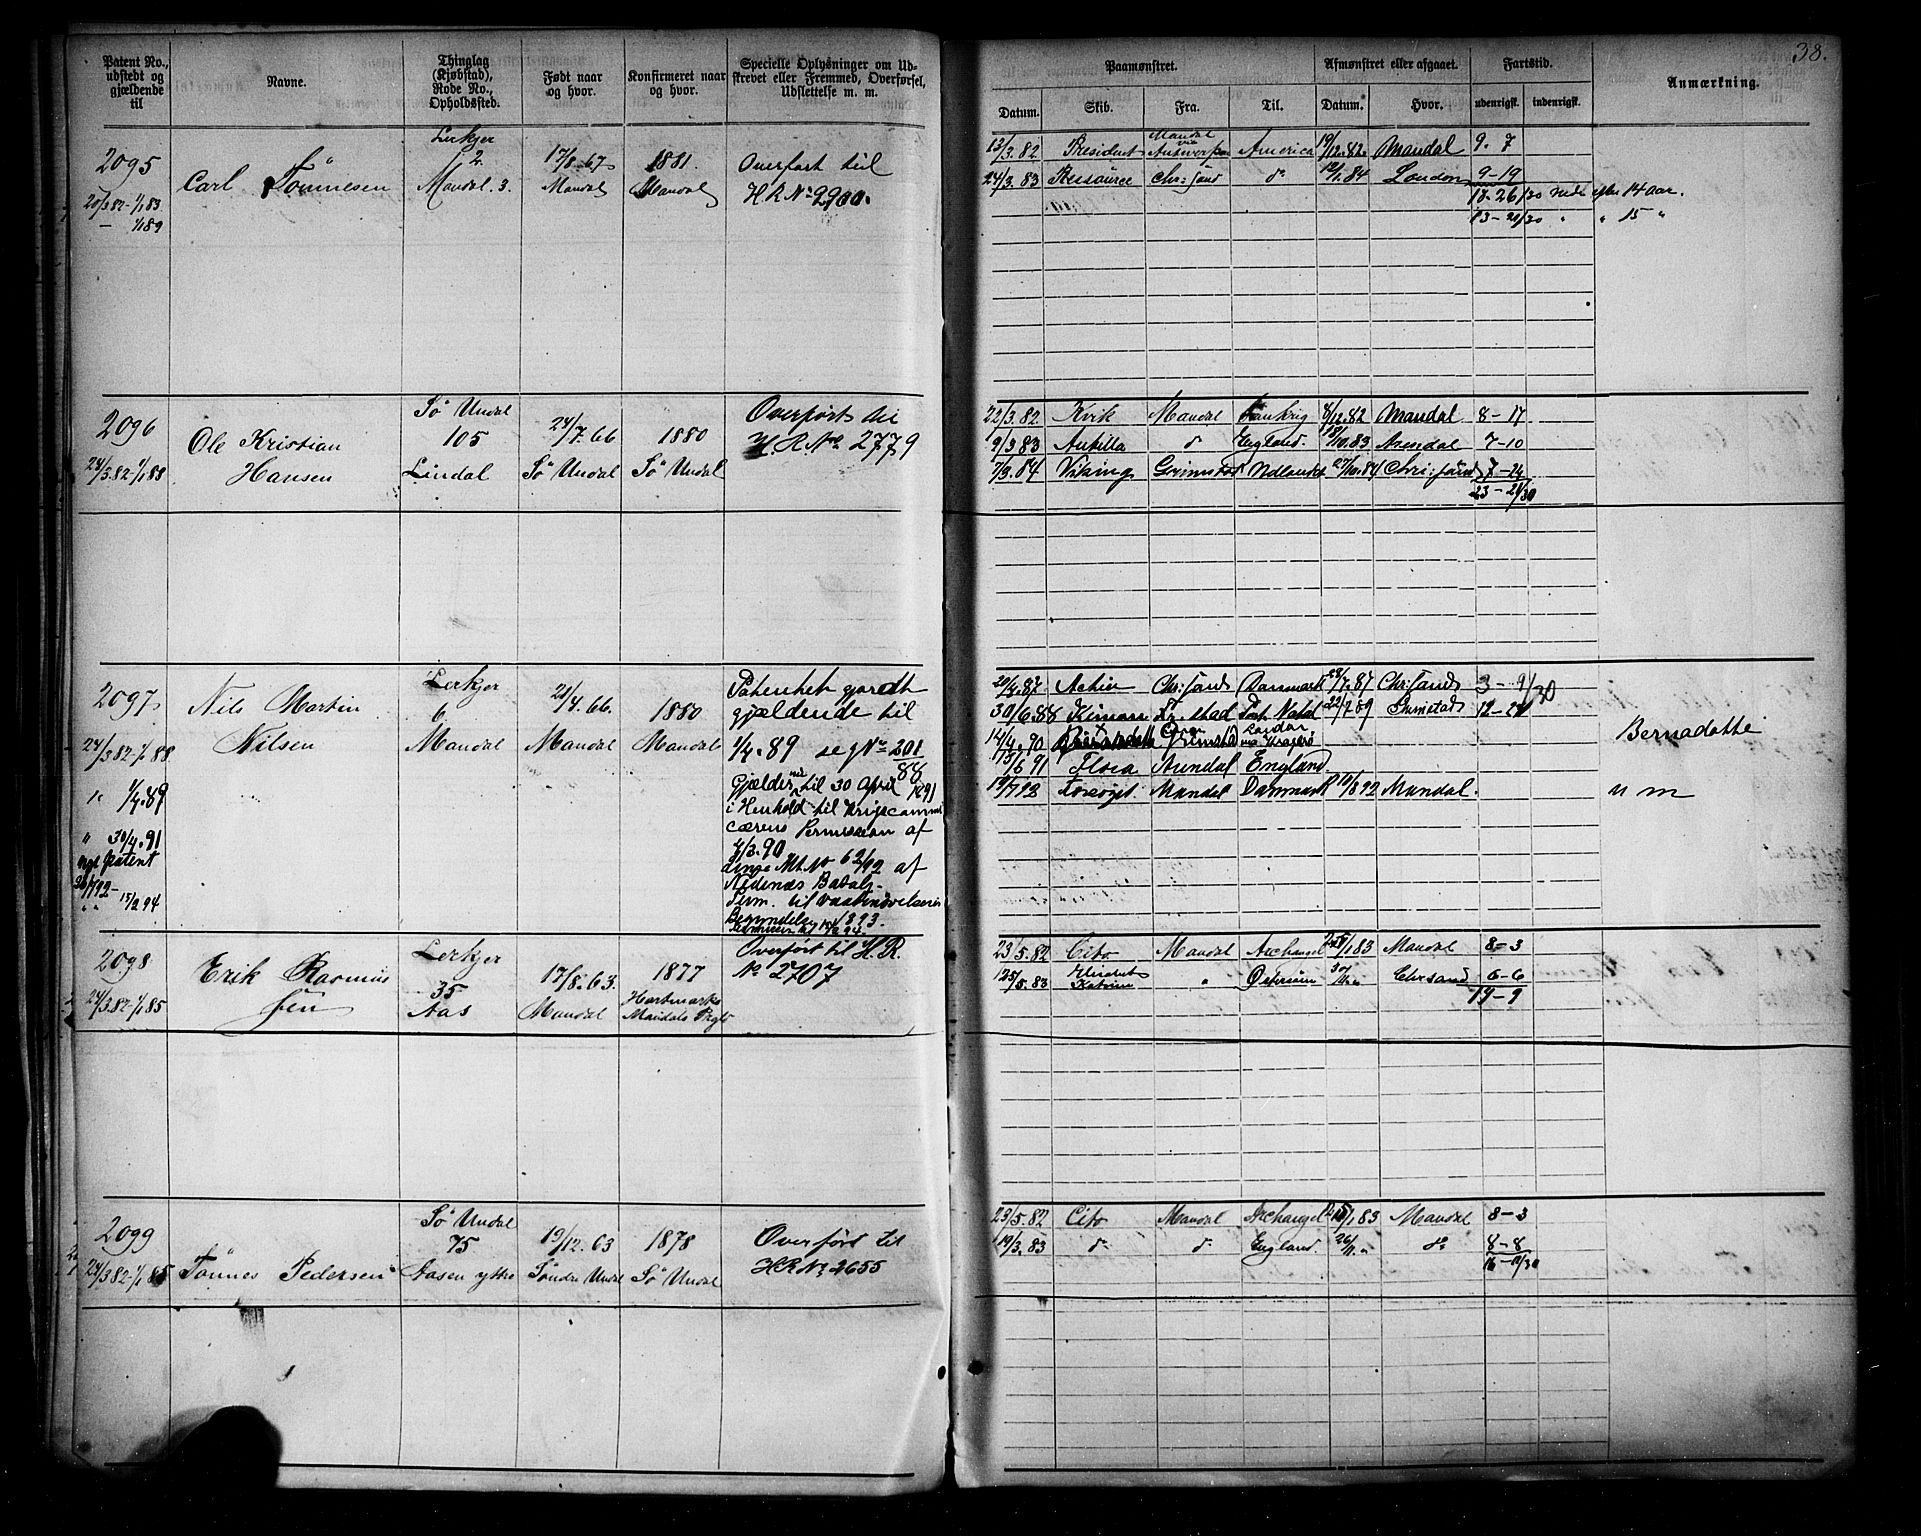 38.
Patent No., udstedt og gjældende til
Navne.
Thinglag (Kjøbstad), Rode No., Opholdssted.
Født naar og hvor.
Konfirmeret naar og hvor.
Specielle Oplysninger om Udskrevet eller Fremmed, Overførsel, Udslettelse m. m.
Paamønstret.
Datum. Skib. Fra. Til.
Afmønstret eller afgaaet.
Datum. Hvor.
Fartstid.
udenrigsk. indenrigsk.
Anmærkning.
2095
20/3 82 - 1/1 83
— 1/1 89
Carl Tönnesen
Lerkjer
2.
Mandal. 3.
17/8. 67
Mandal
1881.
Mandal
Overført til
H R No 2900.
13/3. 82 President Mandal via Antwerpen America 19/12. 82. Mandal 9. 7
24/3. 83 Ressource Chr: sand do 12/1. 84 London 9-19
18-26/30 efter 14 aar.
13-20/30 " " 15 "
2096
24/3. 82 - 1/1 88
Ole Kristian
Hansen
Sö Undal
105
Lindal
24/7. 66
Sö Undal
1880
Sö Undal
Overført til
H. R. No 2779
22/3. 82. Kvik Mandal Frankrig 8/12. 82 Mandal 8-17
9/3 83 do England. 18/10. 83. Arendal 7-10
7/3. 84 Viking Grimstad Udlandet 27/10. 84 Chri: sand 7-24
23-21/30
2097
24/3. 82 - 1/1 88
" 1/4. 89
" 30/4. 91
nyt patent
" " 15/2 94
Nils Martin
Nilsen
Lerkjer
6
Mandal
21/4. 66.
Mandal
1880
Mandal
Patentet gjordt
gjældende til
1/4. 89 seg No 201/88
Gjælder til 30 April 1891
i Henhold til
af
2/3. 90
No 62/92 af
Nedenæs Batalj.
Perm. til vaabenøvelserne
1893.
20/4. 87 Activ Chr: sand Danmark 28/7. 87 Chr: sand 3 - 9/30
30/6. 88 Kr. stad Port Natal 22/7. 89 Grimstad 12-21
14/4. 90 Grimstad Bernadotte
13/6 91 Flora Arendal England.
19/7 92 Forsøget. Mandal Danmark 19/8 92 Mandal. u m
2098
24/3. 82 - 1/1 85
Erik Rasmus
sen
Lerkjer
35
Aas
17/8. 63.
Mandal
1877
Hartmarks
Mandals Prgld
Overført til H. R.
No 2707
23/5. 82 Cito Mandal Archangel 1/83 Mandal 8-3
5. 83 Elisabet Katrine " Chrsand 6-6
14-9
2099
24/3 82 - 1/1 85
Tönnes Pedersen
Sö Undal
75
Aasen ytre
19/12. 63
Söndre Undal
1878
Sö Undal
Overført til
H R No 2655
23/5. 82 Cito Mandal Archangel 1/83 Mandal 8-3
19/3. 83 do do England. 26/11. " do 8-8
16-11/30